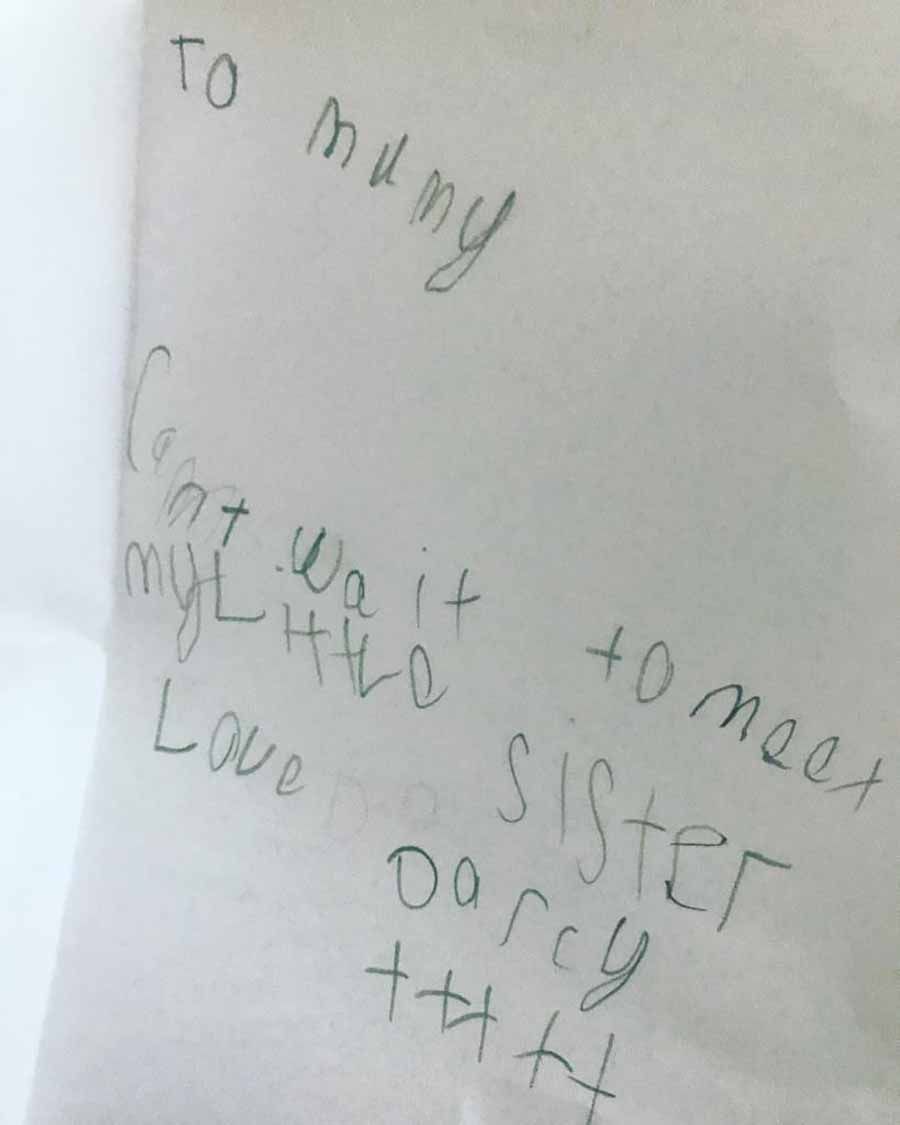 To mumy
Cant wait to meet
my Little sister
Love
Darcy
+++++